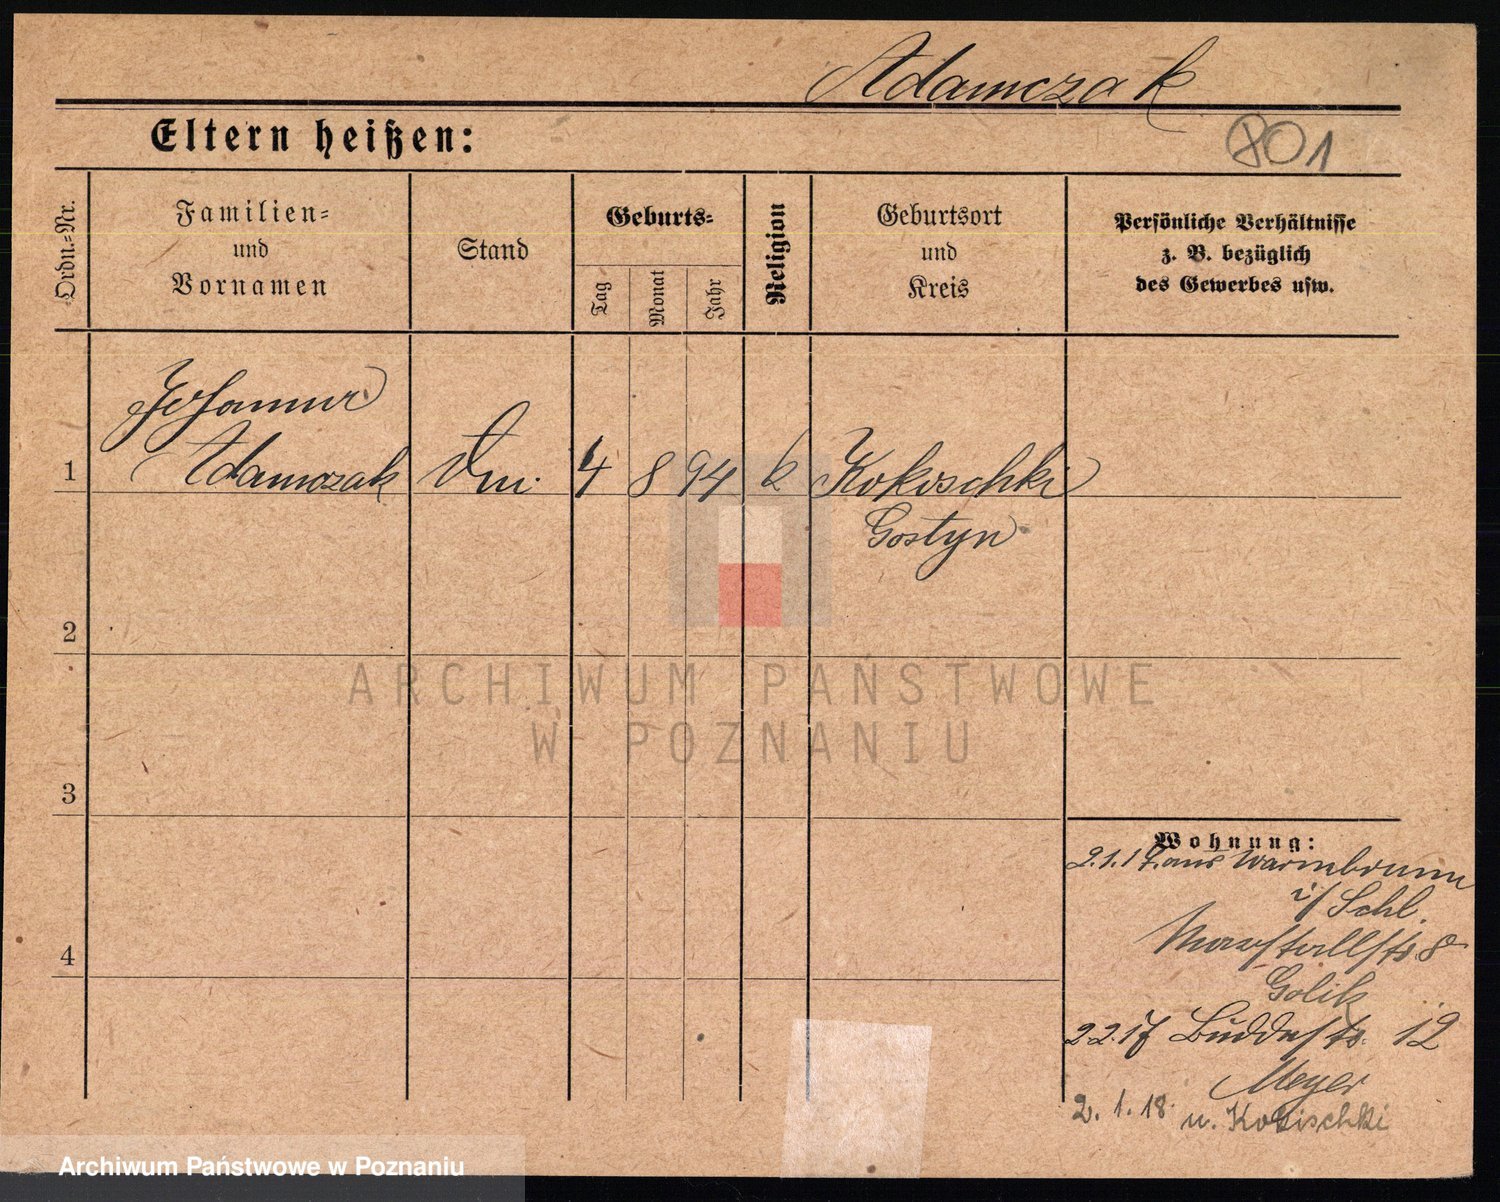 Adamczak
801
Eltern heißen:
Ordn.-Nr.
Familien-
und
Vornamen
Stand
Geburts-
Tag
Monat
Jahr
Religion
Geburtsort
und
Kreis
Persönliche Verhältnisse
z. B. bezüglich
des Gewerbes usw.
Johanna
1 Adamczak 4 8 94 k Kokoschki
Gostyn
2
3
4
Wohnung:
2.1.17. aus Warmbrunn
i/ Schl.
Marstallstr. 8
Golik
2.2.17 Buddestr. 12
Meyer
2.1.18. n. Kokoschki
ARCHIWUM PAŃSTWOWE
W POZNANIU
Archiwum Państwowe w Poznaniu